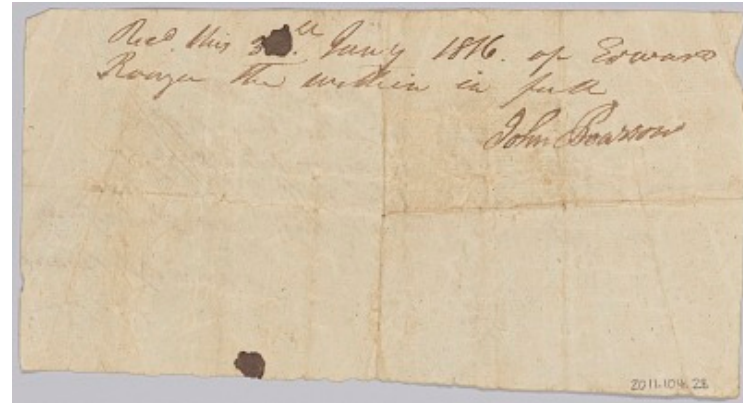 Recd. this 3 th. Jany 1816. of Edward
Rouzee the within in full
John Pearson
2011.104.28